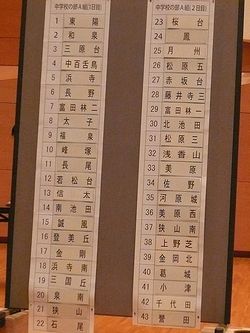 中学校の部A組(1日目)
1 東陽
2 和泉
3 三原台
4 中百舌鳥
5 浜寺
6 長野
7 富田林二
8 太子
9 福泉
10 峰塚
11 長尾
12 若松台
13 信太
14 南池田
15 誠風
16 登美丘
17 金岡
18 浜寺南
19 三国丘
20 泉南
21 狭山
22 石尾
中学校の部A組(2日目)
23 桜台
24 鳳
25 月州
26 松原五
27 赤坂台
28 藤井寺三
29 富田林一
30 北池田
31 松原三
32 浅香山
33 美原
34 佐野
35 河原城
36 美原西
37 狭山南
38 上野芝
39 金岡北
40 葛城
41 小津
42 千代田
43 誉田